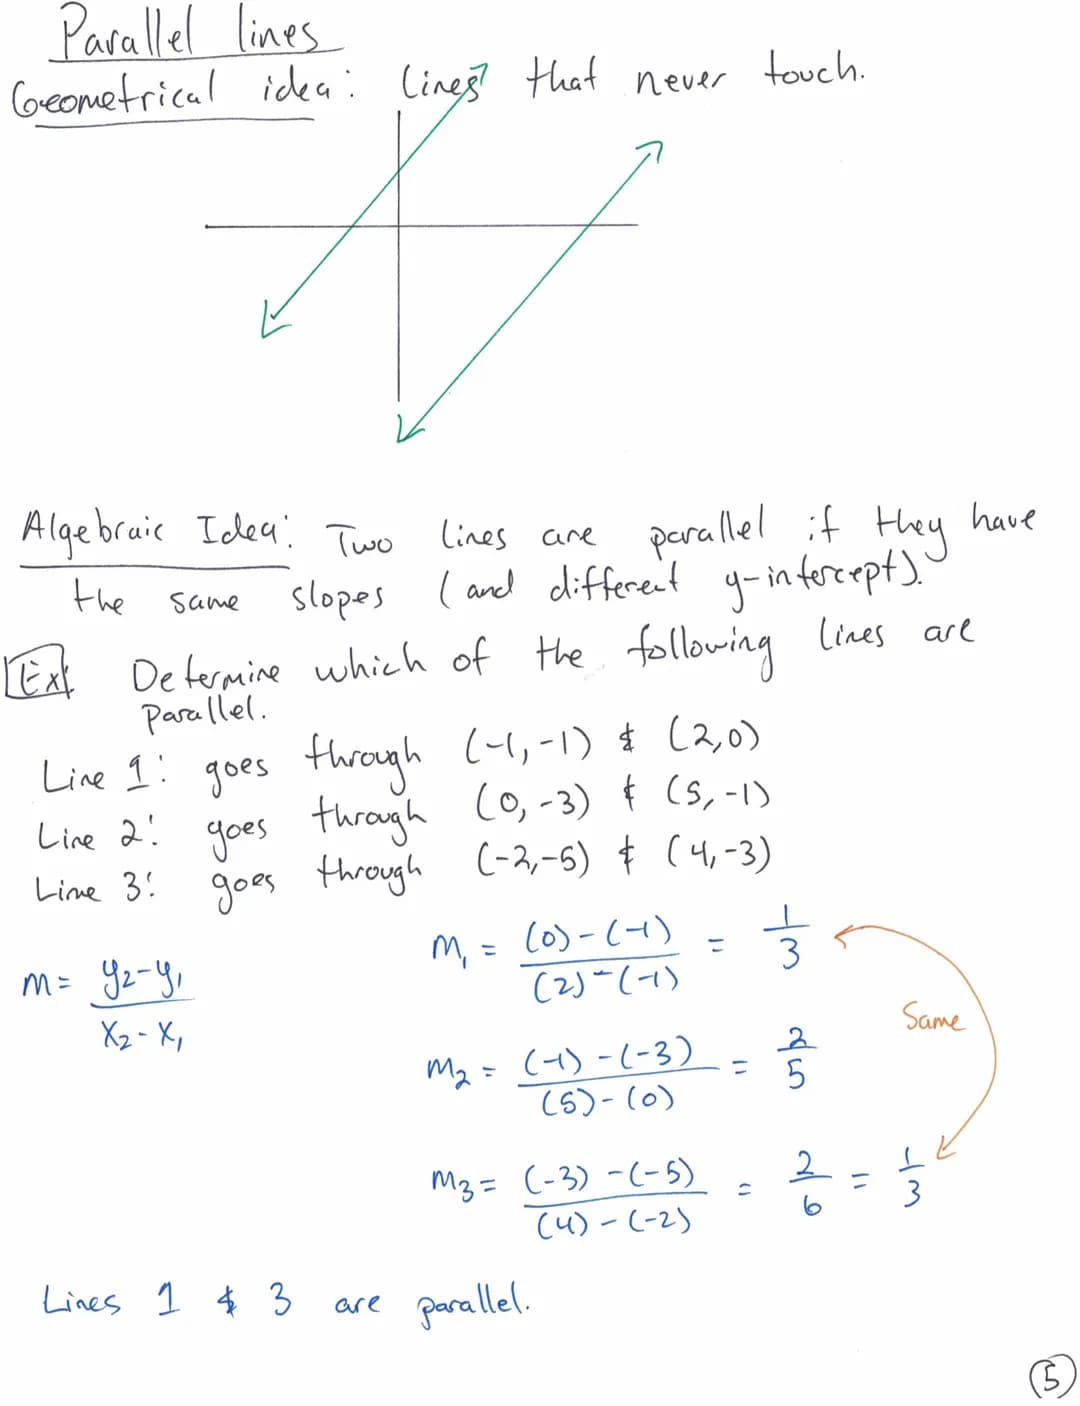 Parallel lines
Geometrical idea: lines that never touch.
Algebraic Idea: Two lines are parallel if they have
the same slopes (and different y-intercept).
Ex. Determine which of the following lines are
parallel.
Line 1: goes through (-1,-1) & (2,0)
Line 2: goes through (0,-3) & (5,-1)
Line 3: goes through (-2,-5) & (4,-3)
m = (y₂-y₁)/(x₂-x₁)
m₁ = ((0)-(-1))/((2)-(-1)) = 1/3
Same
m₂ = ((-1)-(-3))/((5)-(0)) = 2/5
m₃ = ((-3)-(-5))/((4)-(-2)) = 2/6 = 1/3
Lines 1 & 3 are parallel.
5